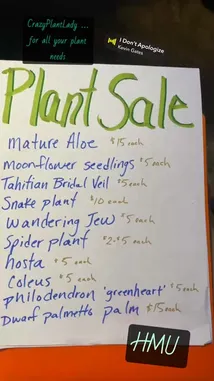 CrazyPlantLady ...
for all your plant
needs
I Don't Apologize
Kevin Gates
Plant Sale
Mature Aloe $15 each
moonflower seedlings $5 each
Tahitian Bridal Veil $5 each
Snake plant $10 each
Wandering Jew $5 each
Spider plant $2-$5 each
hosta $5 each
Coleus $5 each
philodendron 'greenheart' $5 each
Dwarf palmetto palm $15 each
HMU